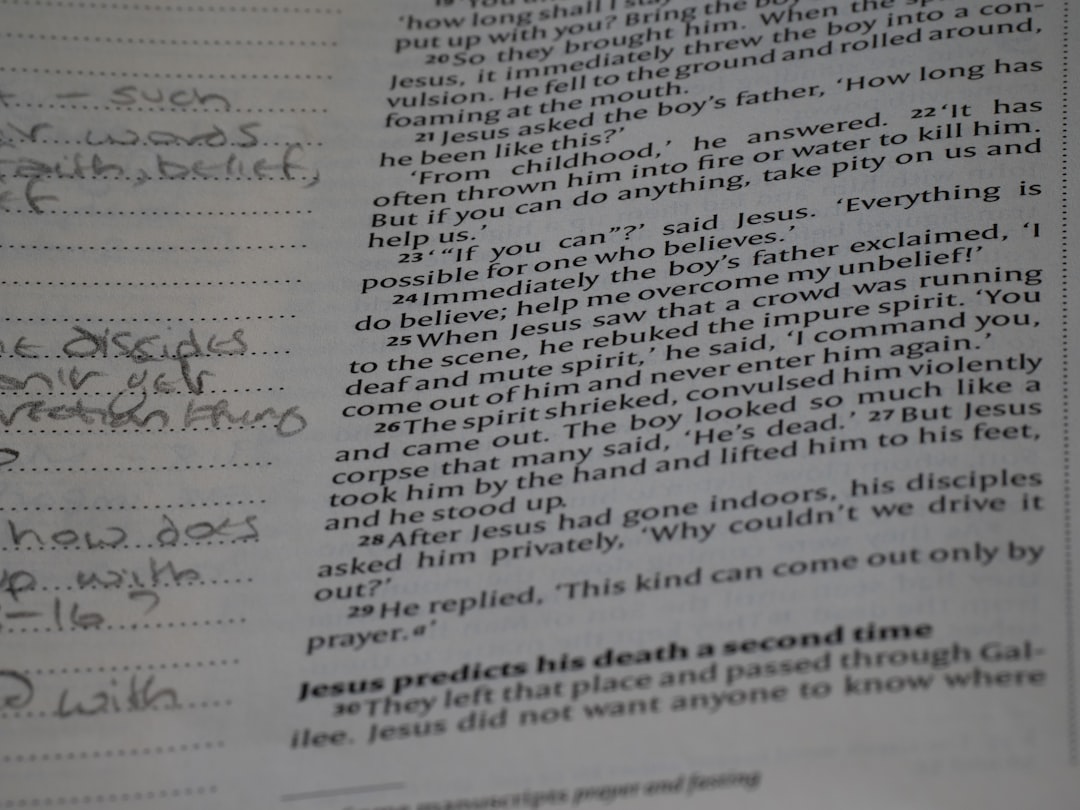 – such
words
faith, belief,
disciples
how does
with
-16?
with
'how long shall I stay
put up with you? Bring the boy
20 So they brought him. When the
Jesus, it immediately threw the boy into a con-
vulsion. He fell to the ground and rolled around,
foaming at the mouth.
21 Jesus asked the boy's father, 'How long has
he been like this?'
'From childhood,' he answered. 22 'It has
often thrown him into fire or water to kill him.
But if you can do anything, take pity on us and
help us.'
23 '"If you can"?' said Jesus. 'Everything is
possible for one who believes.'
24 Immediately the boy's father exclaimed, 'I
do believe; help me overcome my unbelief!'
25 When Jesus saw that a crowd was running
to the scene, he rebuked the impure spirit. 'You
deaf and mute spirit,' he said, 'I command you,
come out of him and never enter him again.'
26 The spirit shrieked, convulsed him violently
and came out. The boy looked so much like a
corpse that many said, 'He's dead.' 27 But Jesus
took him by the hand and lifted him to his feet,
and he stood up.
28 After Jesus had gone indoors, his disciples
asked him privately, 'Why couldn't we drive it
out?'
29 He replied, 'This kind can come out only by
prayer.a'
Jesus predicts his death a second time
30 They left that place and passed through Gal-
ilee. Jesus did not want anyone to know where
manuscripts prayer and fasting